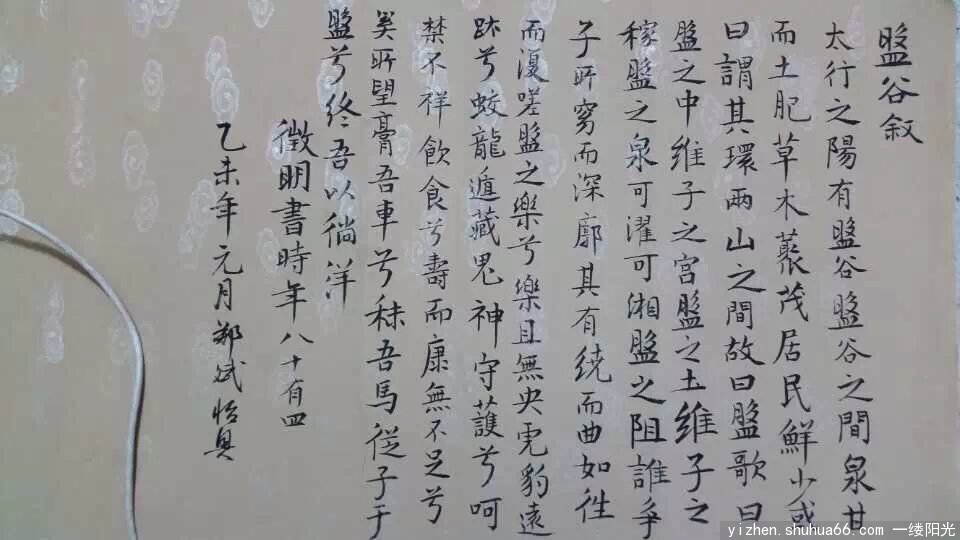 盤谷叙
太行之陽有盤谷盤谷之間泉甘
而土肥草木藂茂居民鮮少或
曰謂其環兩山之間故曰盤歌曰
盤之中維子之宮盤之土維子之
稼盤之泉可濯可湘盤之阻誰爭
子所窈而深廓其有繞而曲如往
而復嗟盤之樂兮樂且無央虎豹遠
跡兮蛟龍遁藏鬼神守護兮呵
禁不祥飲食兮壽而康無不足兮
奚所望膏吾車兮秣吾馬從子于
盤兮終吾以徜洋
徵明書時年八十有四
乙未年元月鄭斌
yizhen.shuhua66.com 一缕阳光